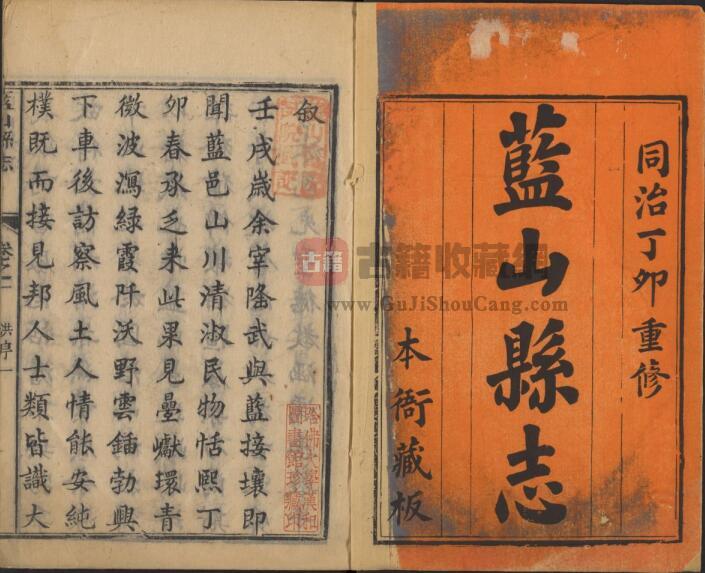 同治丁卯重修
藍山縣志
本衙藏板
叙
壬戌歲余宰隆武與藍接壤即
聞藍邑山川清淑民物恬熙丁
卯春承乏来此果見曡巘環青
微波瀉緑霞阡沃野雲鍤勃興
下車後訪察風土人情能安純
樸既而接見邦人士類皆識大
藍山縣志
卷之一
洪序一
哈佛大學漢和
圖書館珍藏印
古籍
古籍收藏網
www.GuJiShouCang.com